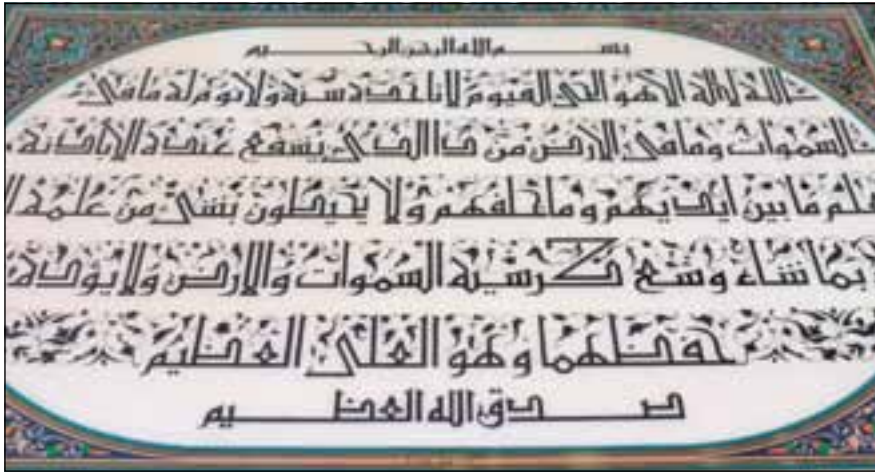 بسم الله الرحمن الرحيم
الله لا اله الا هو الحي القيوم لا تاخذه سنة ولا نوم له ما في
السموات وما في الارض من ذا الذي يشفع عنده الا باذنه
يعلم ما بين ايديهم وما خلفهم ولا يحيطون بشيء من علمه ا
لا بما شاء وسع كرسيه السموات والارض ولا يؤده
حفظهما وهو العلي العظيم
صدق الله العظيم